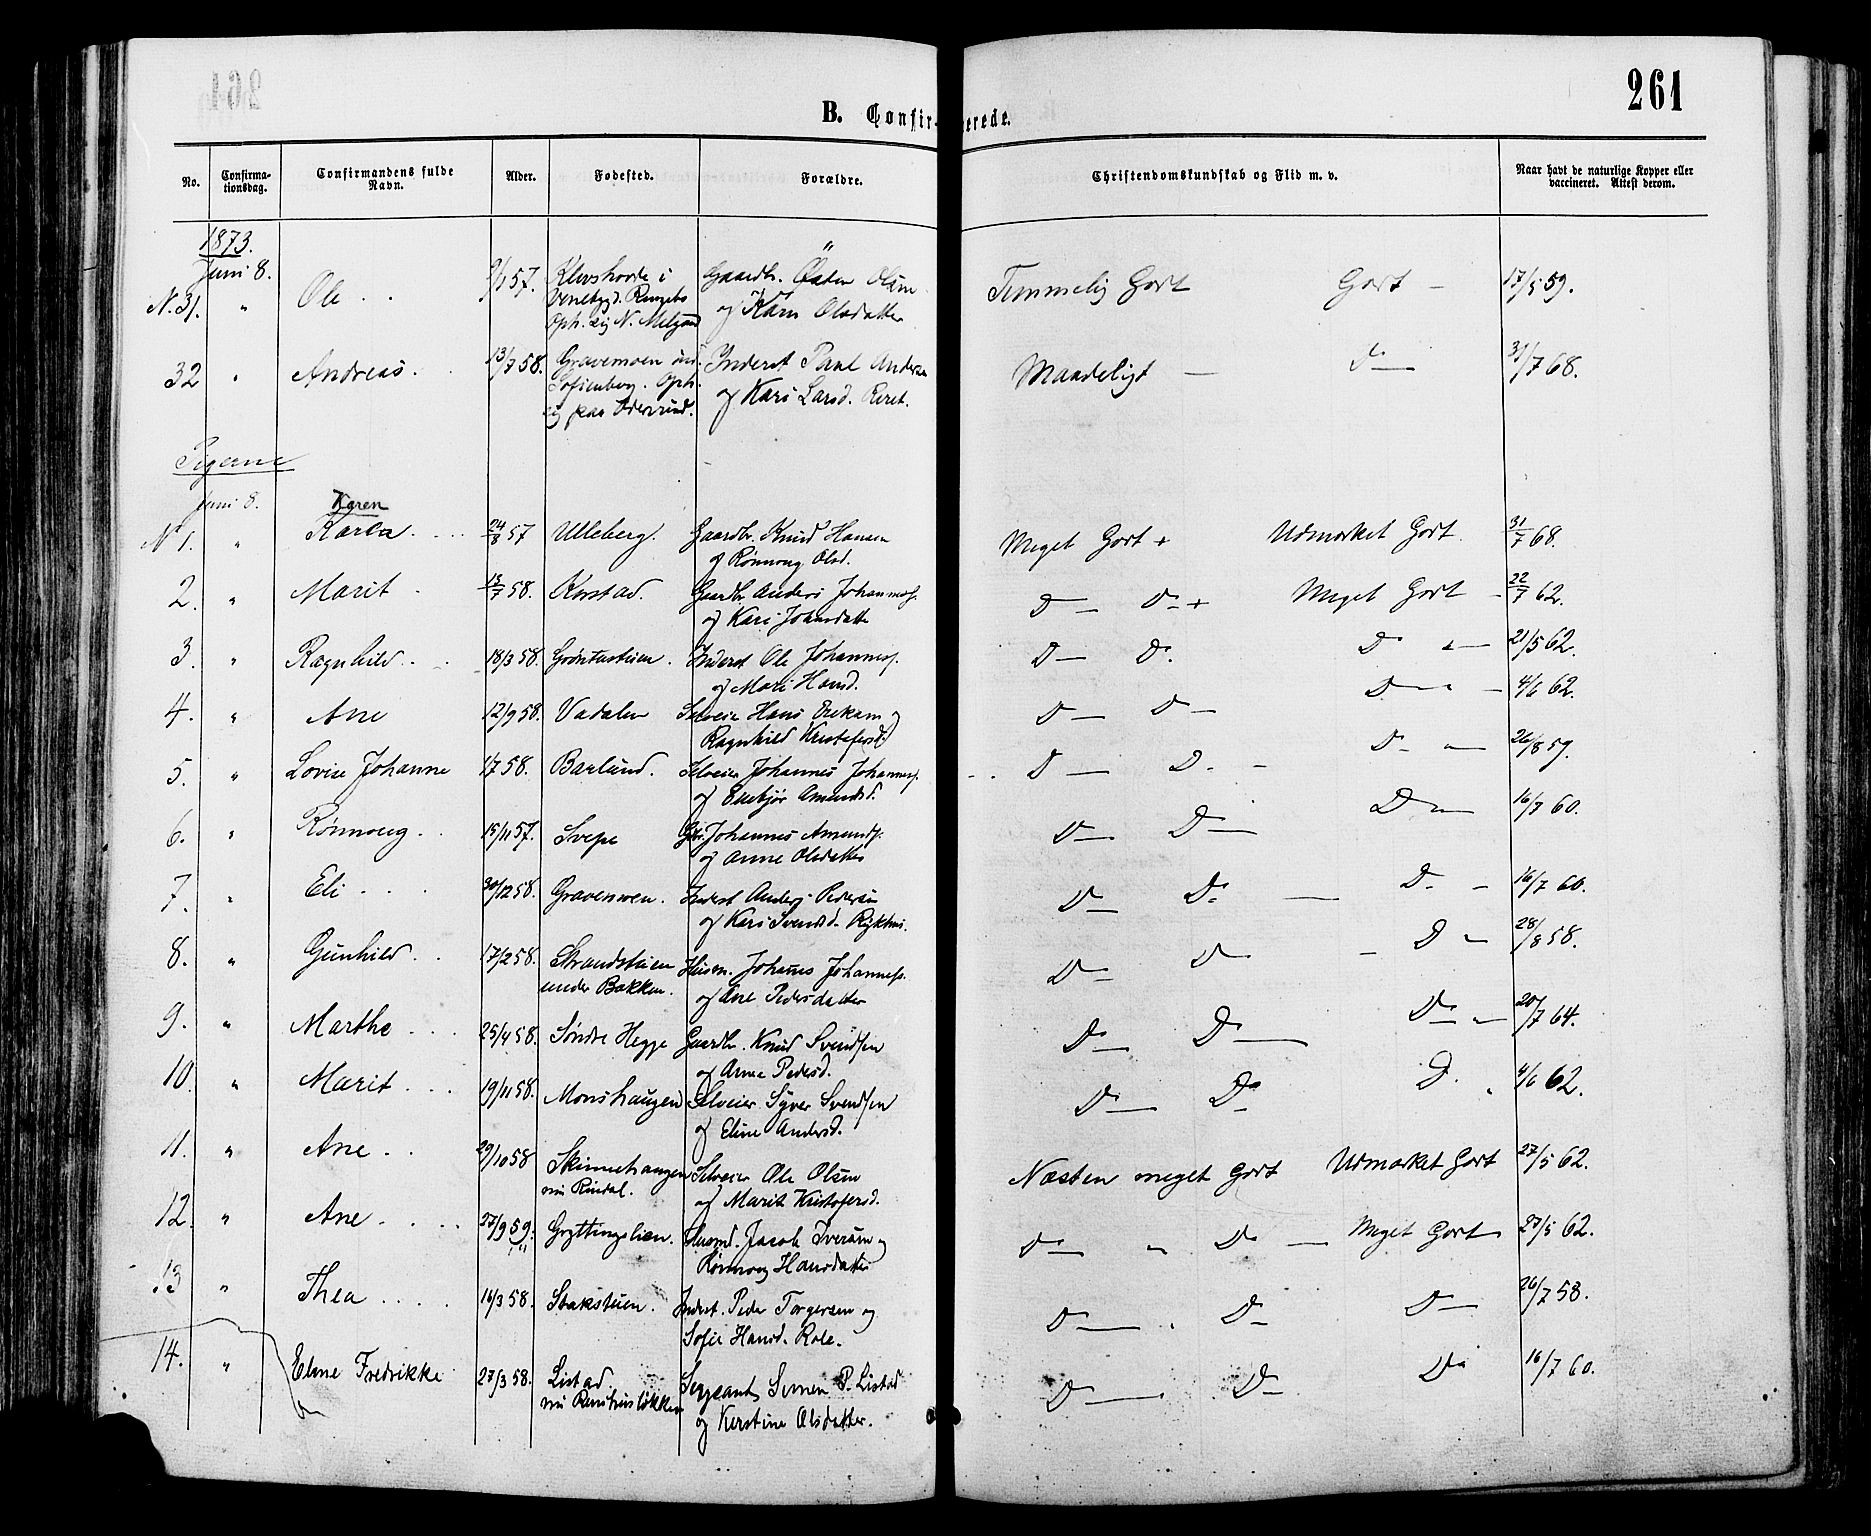 261
B. Confir- merede.
No. Confirma-tionsdag. Confirmandens fulde Navn. Alder. Fødested. Forældre. Christendomskundskab og Flid m. v. Naar havt de naturlige Kopper eller vaccineret. Attest derom.
1873.
Juni 8.
N. 31. " Ole 57. i Gaardbr. Østen Olsen Temmelig Godt Godt - 17/5 59.
Venebygd. Ringebo og Kari Olsdatter
Oph. sig N.
32 " Andreas 13/7 58. Gravemoen Inderst Paul Anders Maadeligt - Do - 31/7 68.
Sofienberg. Oph. og Kari Larsd.
sig paa
Pigerne
Juni 8. Karen
N 1. " Karen 24/8 57 Ulleberg. Gaardbr. Knud Hansen Meget Godt + Udmærket Godt. 31/7 68.
og Rønnoug Olsd.
2. " Marit 13/7 58. Korstad. Gaardbr. Anders Johanness. D - Do + Meget Godt - 22/7 62.
og Kari Johnsdatter
3. " Ragnhild 18/3 58. Grøntustuen. Inderst Ole Johanness. D - D. D " - 21/5 62.
og Mari Hansd.
4. " Ane 12/9 58. Vadalen Selveier Hans Ereksen og D - D - D - " - 4/6 62.
Ragnhild Kristofersd.
5. " Lovise Johanne 1/7 58. Barlund. Selveier Johannes Johanness. D - D. - D - " - 26/8 59.
og Amundsd.
6. " Rønnoug 15/11 57. Svepe Gbr. Johannes Amunds. D - D - D " - 16/7 60.
og Anne Olsdatter
7. " Eli 30/12 58. Gravemoen. Inderst Anders Pedersen D - Do - D - - 16/7 60.
og Kari Svendsd.
8. " Gunhild 17/2 58. Strandstuen Husm. Johans Johanness. D - D - D " - 28/8 58.
under Bakken. og Ane Pedersdatter
9. " Marthe 25/4 58. Søndre Hegge Gaardbr. Knud Svendsen D - D - D - " - 20/7 64.
og Anne Pedersd.
10. " Marit 19/11 58. Monshaugen Selveier Syver Svendsen D - Do - D. " 4/6 62.
og Eline Andersd.
11. " Ane 29/10 58 Skinnehaugen Selveier Ole Olsen Næsten meget Godt Udmærket Godt 27/5 62.
nu Rindal. og Marit Kristofersd.
12. " Ane 27/9 59. Gryttingslien. Husmd. Jacob Iversen og D - " D - Meget Godt 27/5 62.
Rønnoug Hansdatter
13 " Thea 16/3 58. Stakstuen. Inderst. Peder Torgersen og D - " D - D - 26/7 58.
Sofie Hansd. Role.
14. " Eline Fredrikke 27/3 58. Listad Sergeant Simen P. Listad D - D - Do 16/7 60.
nu og Kerstine Olsdatter.